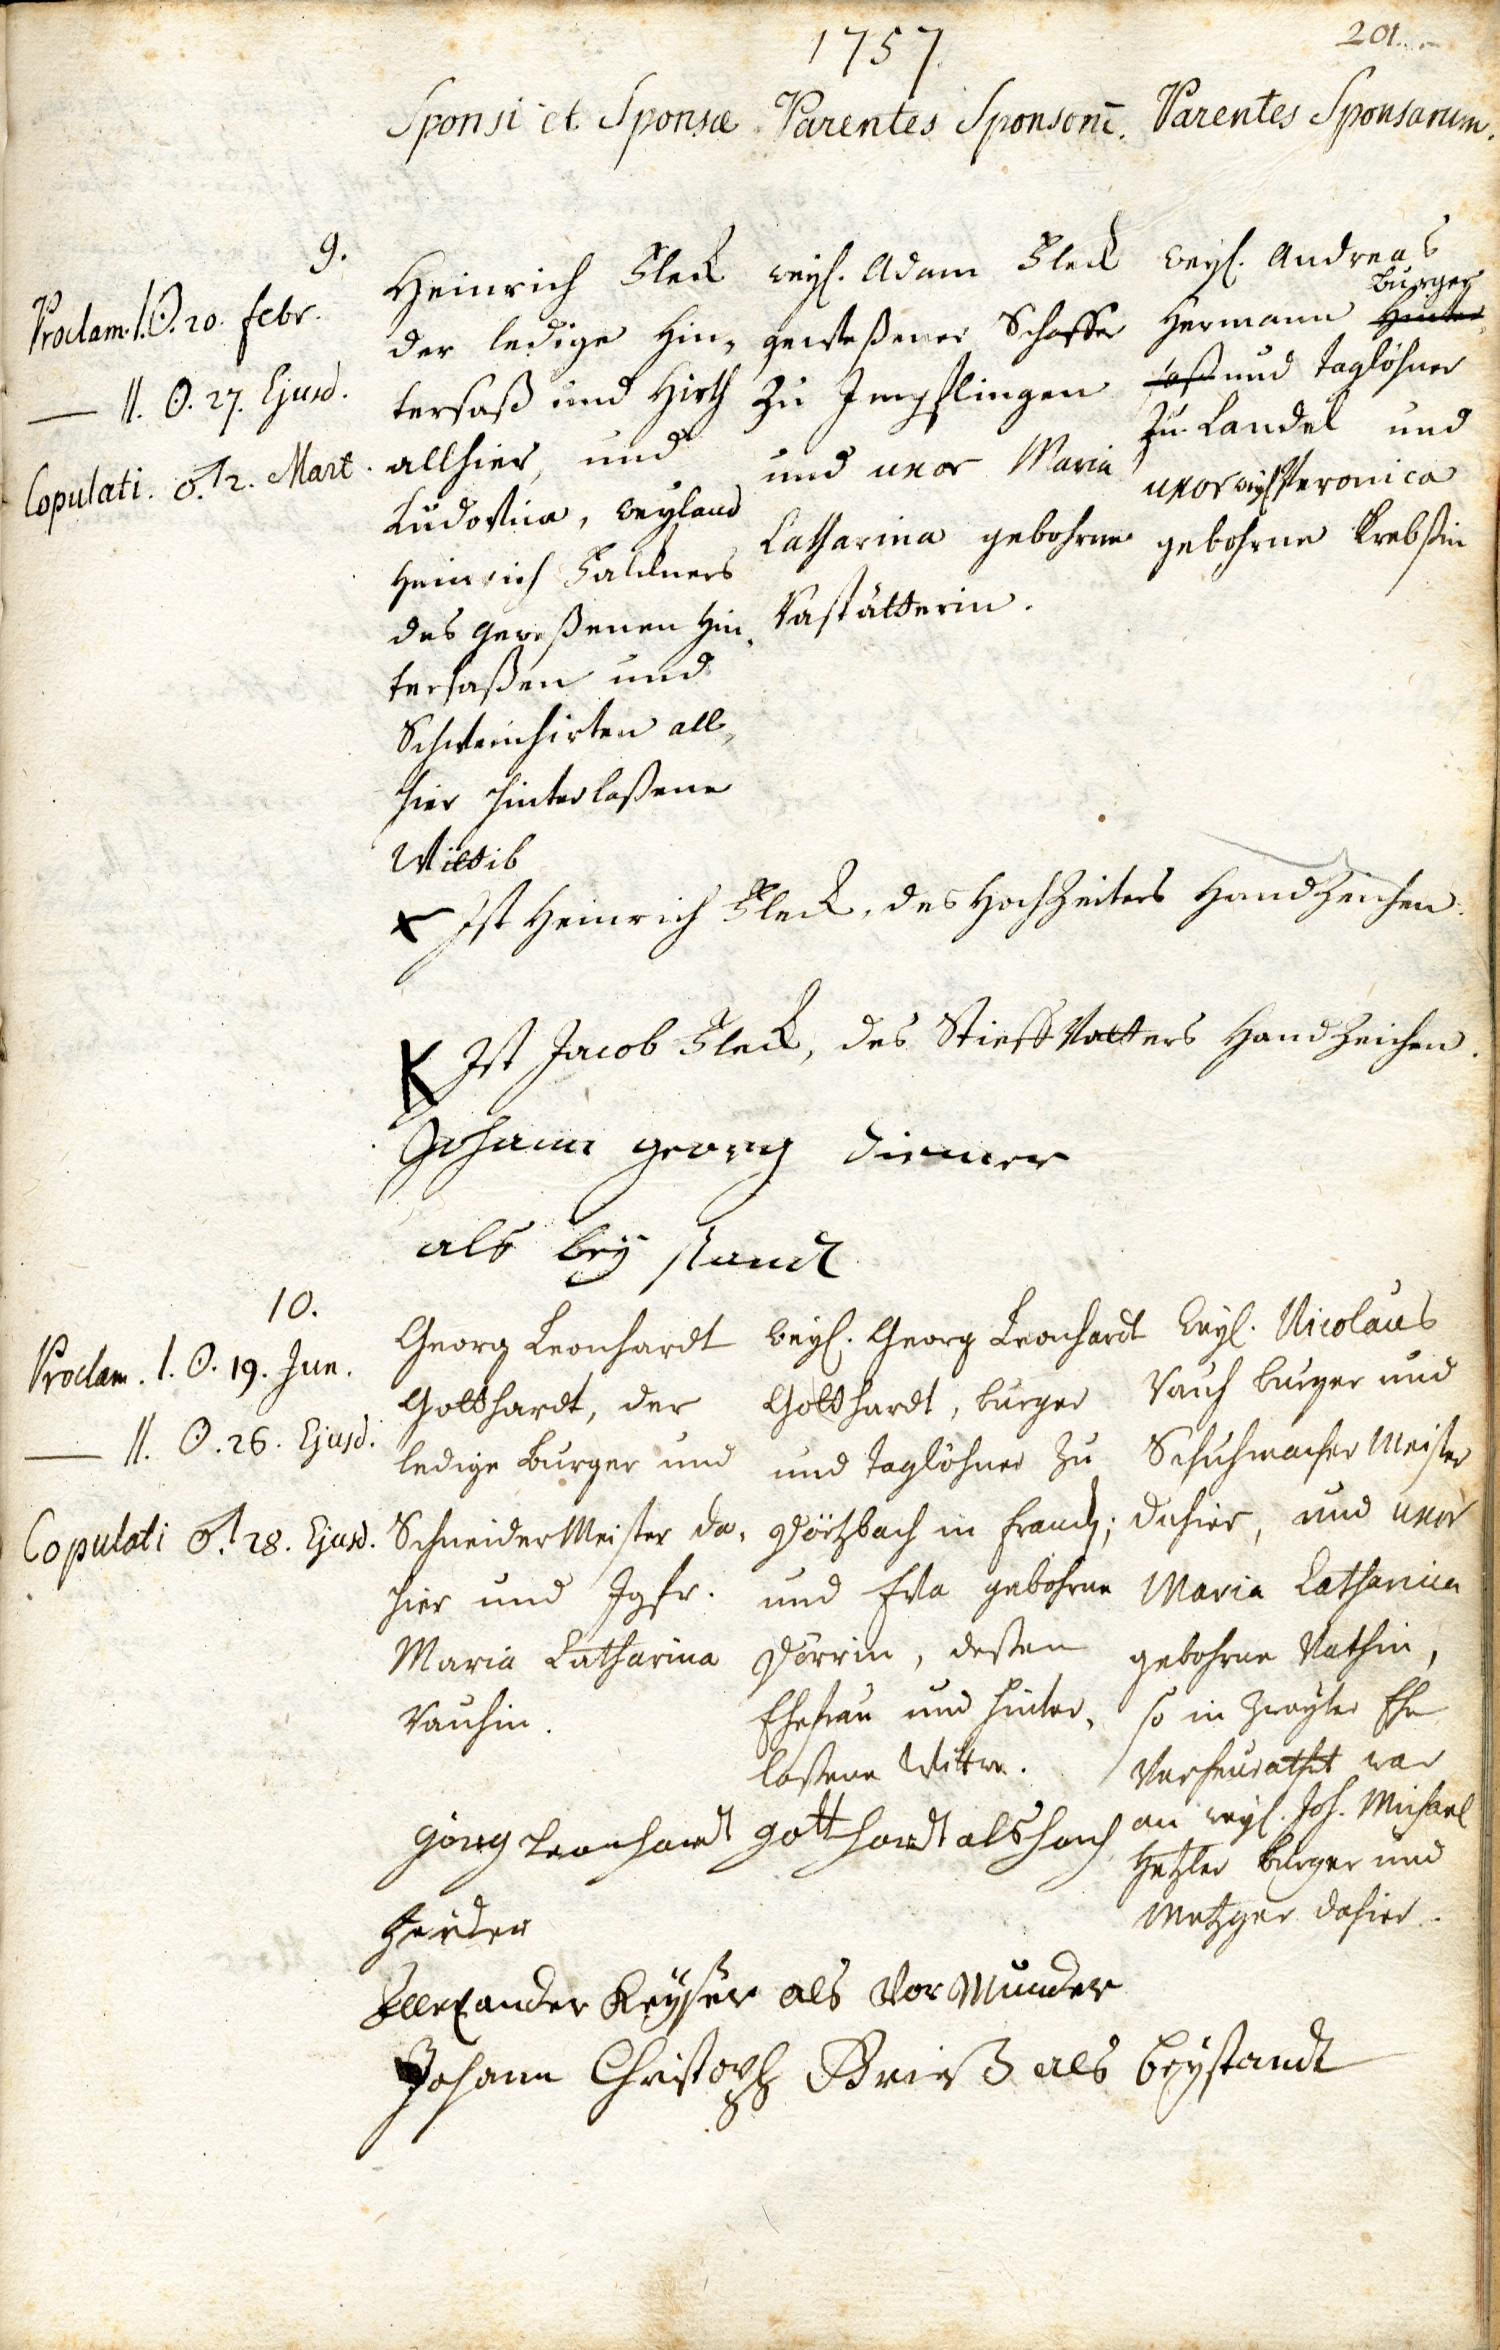 1757
201.
Sponsi et Sponsæ
Parentes Sponsorū.
Parentes Sponsarum.
9.
Proclam. I. ☉. 20. Febr.
— II. ☉. 27. Ejusd.
Copulati. ♂. 1 2. Mart.
Heinrich Fleck
der ledige Hin„
tersaß und Hirth
allhier, und
Ludovica, weyland
Heinrich Faldners
des geweßenen Hin„
tersaßen und
Schweinhirten all„
hier hinterlaßene
Wittib
weyl. Adam Fleck
geweßener Schaffer
zu Impflingen
und uxor Maria
Catharina gebohrne
Rastätterin.
weyl. Andreas
Burger
Hermann Hinter„
saß und Taglöhner
zu Landel und
uxor weyl. Veronica
gebohrne Krebsin
x Ist Heinrich Fleck, des Hochzeiters Handzeichen.
K Ist Jacob Fleck, des Stieff Vatters Handzeichen.
Johann Georg Diemer
als bey standt
10.
Proclam. I. ☉. 19. Jun.
— II. ☉. 26. Ejusd.
Copulati ♂. 28. Ejusd.
Georg Leonhardt
Gotthardt, der
ledige Burger und
Schneider Meister da„
hier und Jgfr.
Maria Catharina
Rauchin.
weyl. Georg Leonhardt
Gotthardt, burger
und Taglöhner zu
Dörtzbach in Franck;
und Eva gebohrne
Dörrin, deßen
Ehefrau und hinter„
laßene Wittwe.
Weyl. Nicolaus
Rauch burger und
Schuhmacher Meister
dahier, und uxor
Maria Catharina
gebohrne Rathin,
so in zweyter Ehe
Verheurathet war
an weyl. Joh. Michael
Hetzler burger und
Metzger dahier.
görg Leonhardt gotthardt als hoch
zeider
Allexander Keyser als Vor Munder
Johann Christoph Grieß als beystandt